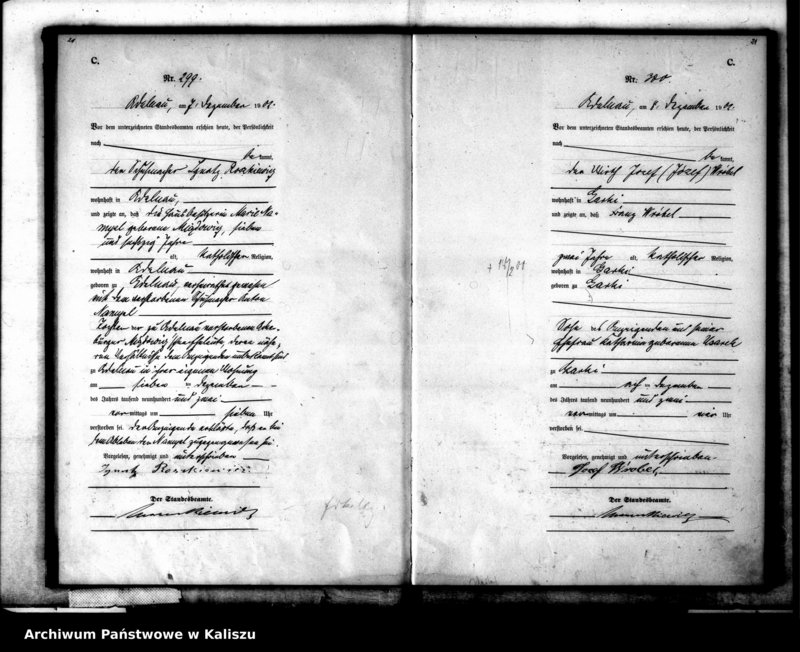 C.
Nr. 299.
Adelnau, am 7. Dezember 1902.
Vor dem unterzeichneten Standesbeamten erschien heute, der Persönlichkeit
nach
be kannt,
der Schuhmacher Ignatz Roszkiewicz
wohnhaft in Adelnau,
und zeigte an, daß die Hausbesitzerin Marie
geborene Migdowicz, sieben
und sechzig Jahre
alt, katholischer Religion,
wohnhaft in Adelnau
geboren zu Adelnau, verheirathet gewesen
mit dem verstorbenen Schuhmacher Anton
Tochter der zu Adelnau verstorbenen Acker-
bürger Migdowicz'schen Eheleute, deren nähe-
ren Verhältnisse dem Anzeigenden unbekannt sind
zu Adelnau in ihrer eigenen Wohnung
am sieben ten Dezember
des Jahres tausend neunhundert und zwei
vor mittags um sieben Uhr
verstorben sei. Der Anzeigende erklärte, daß er bei
dem Ableben der zugegen gewesen sei.
Vorgelesen, genehmigt und unterschrieben
Ignatz Roszkiewicz
Der Standesbeamte.
C.
Nr. 300.
Adelnau, am 8. Dezember 1902.
Vor dem unterzeichneten Standesbeamten erschien heute, der Persönlichkeit
nach
be kannt,
der Wirth Josef (Józef) Wróbel
wohnhaft in
und zeigte an, daß Franz Wróbel
zwei Jahre alt, katholischer Religion,
wohnhaft in
geboren zu
Sohn des Anzeigenden und seiner
Ehefrau Katharina geborenen
zu
am ten Dezember
des Jahres tausend neunhundert und zwei
vor mittags um vier Uhr
verstorben sei.
Vorgelesen, genehmigt und unterschrieben
Josef Wróbel
Der Standesbeamte.
Archiwum Państwowe w Kaliszu